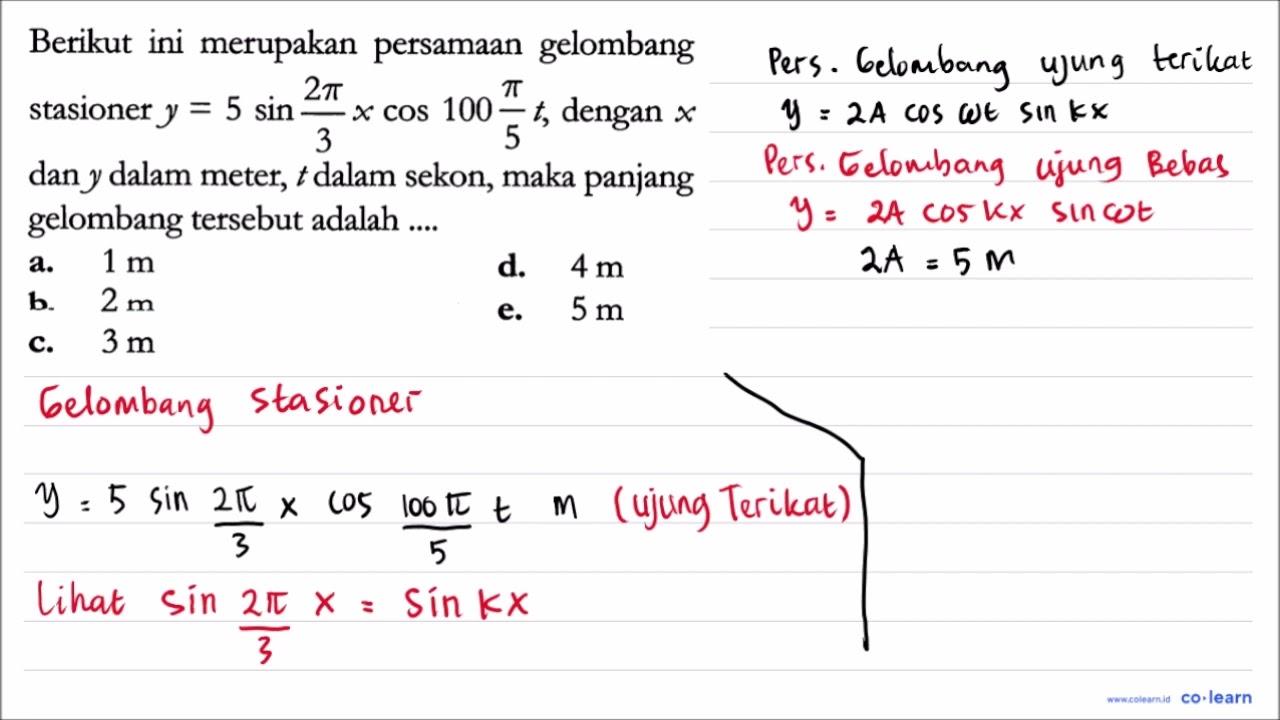 Berikut ini merupakan persamaan gelombang
stasioner y = 5 sin 2π/3 x cos 100 π/5 t, dengan x
dan y dalam meter, t dalam sekon, maka panjang
gelombang tersebut adalah ....
a. 1 m
b. 2 m
c. 3 m
d. 4 m
e. 5 m
Pers. Gelombang ujung terikat
y = 2A cos ωt sin kx
Pers. Gelombang ujung Bebas
y = 2A cos kx sin ωt
2A = 5 m
Gelombang stasioner
y = 5 sin 2π/3 x cos 100π/5 t m (ujung Terikat)
Lihat sin 2π/3 x = sin kx
www.colearn.id co·learn